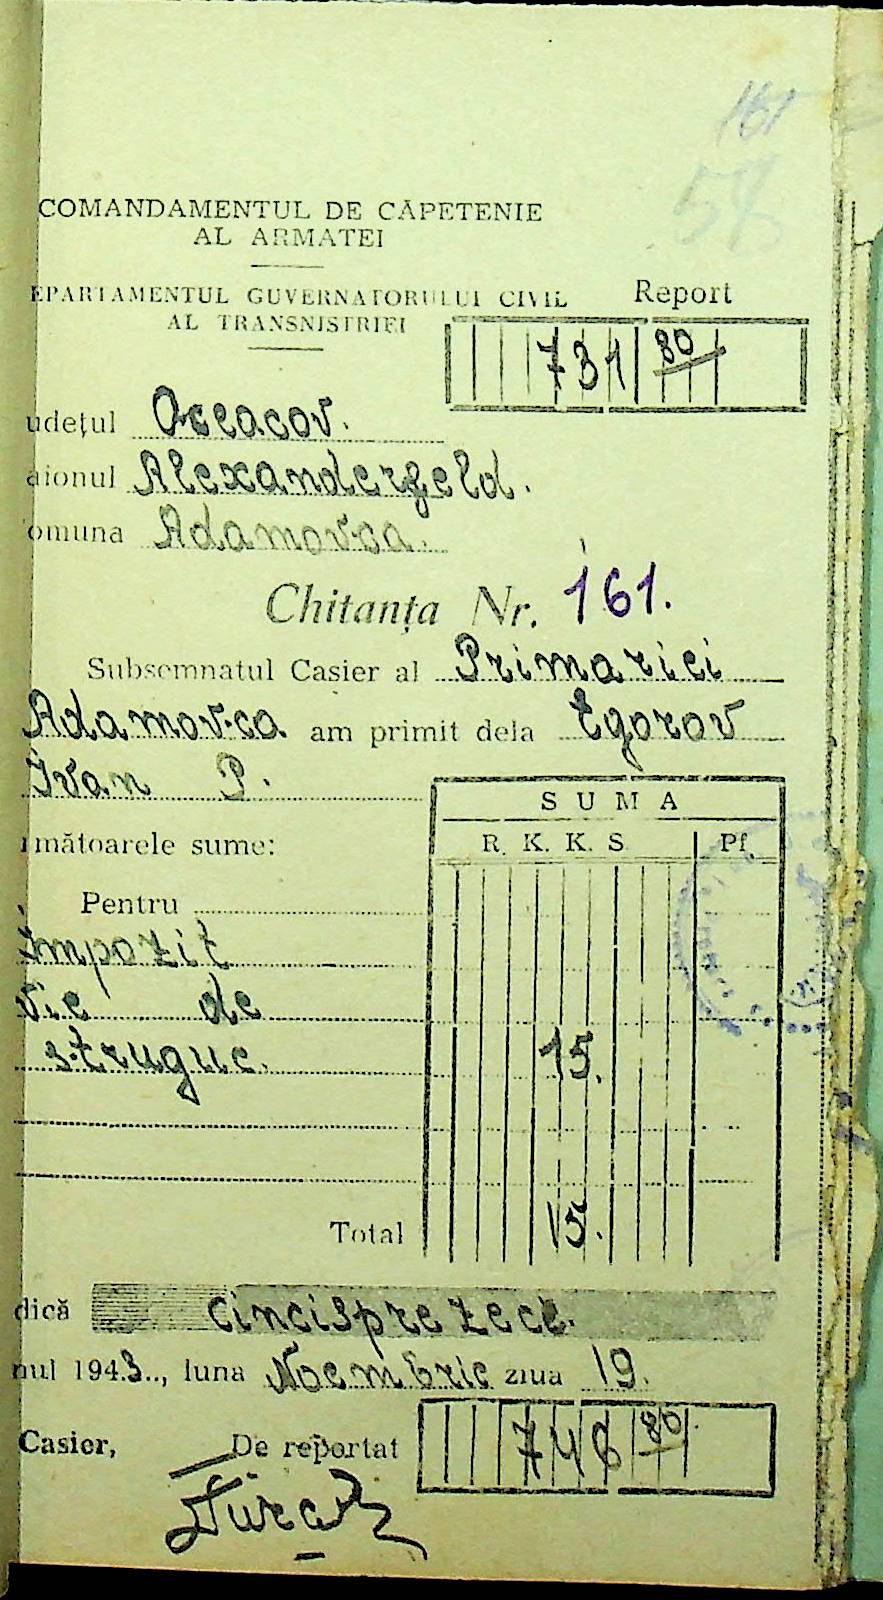 161
58
COMANDAMENTUL DE CĂPETENIE
AL ARMATEI
EPARTAMENTUL GUVERNATORULUI CIVIL
AL TRANSNISTRIEI
Report
731 80
udețul Oceacov.
aionul Alexanderfeld.
omuna Adamovca.
Chitanța Nr. 161.
Subsemnatul Casier al Primariei
Adamovca am primit dela Egorov
Ivan P.
SUMA
R. K. K. S. Pf.
mătoarele sume:
Pentru
Impozit
vie de
strugue. 15.
Total 15.
dică cincisprezece.
nul 1943.., luna Noembrie ziua 19.
Casier, De reportat 746 80